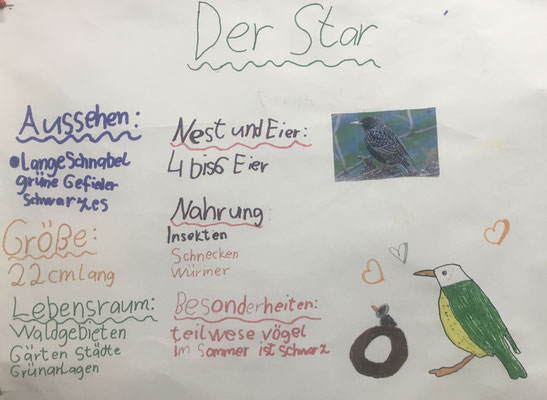 Der Star
Aussehen:
Lange Schnabel
grüne Gefieder
Schwarzes
Größe:
22cm lang
Lebensraum:
Waldgebieten
Gärten Städte
Grünarlagen
Nest und Eier:
4 bis 6 Eier
Nahrung:
Insekten
Schnecken
Würmer
Besonderheiten:
teilwese vögel
im Sommer ist schwarz